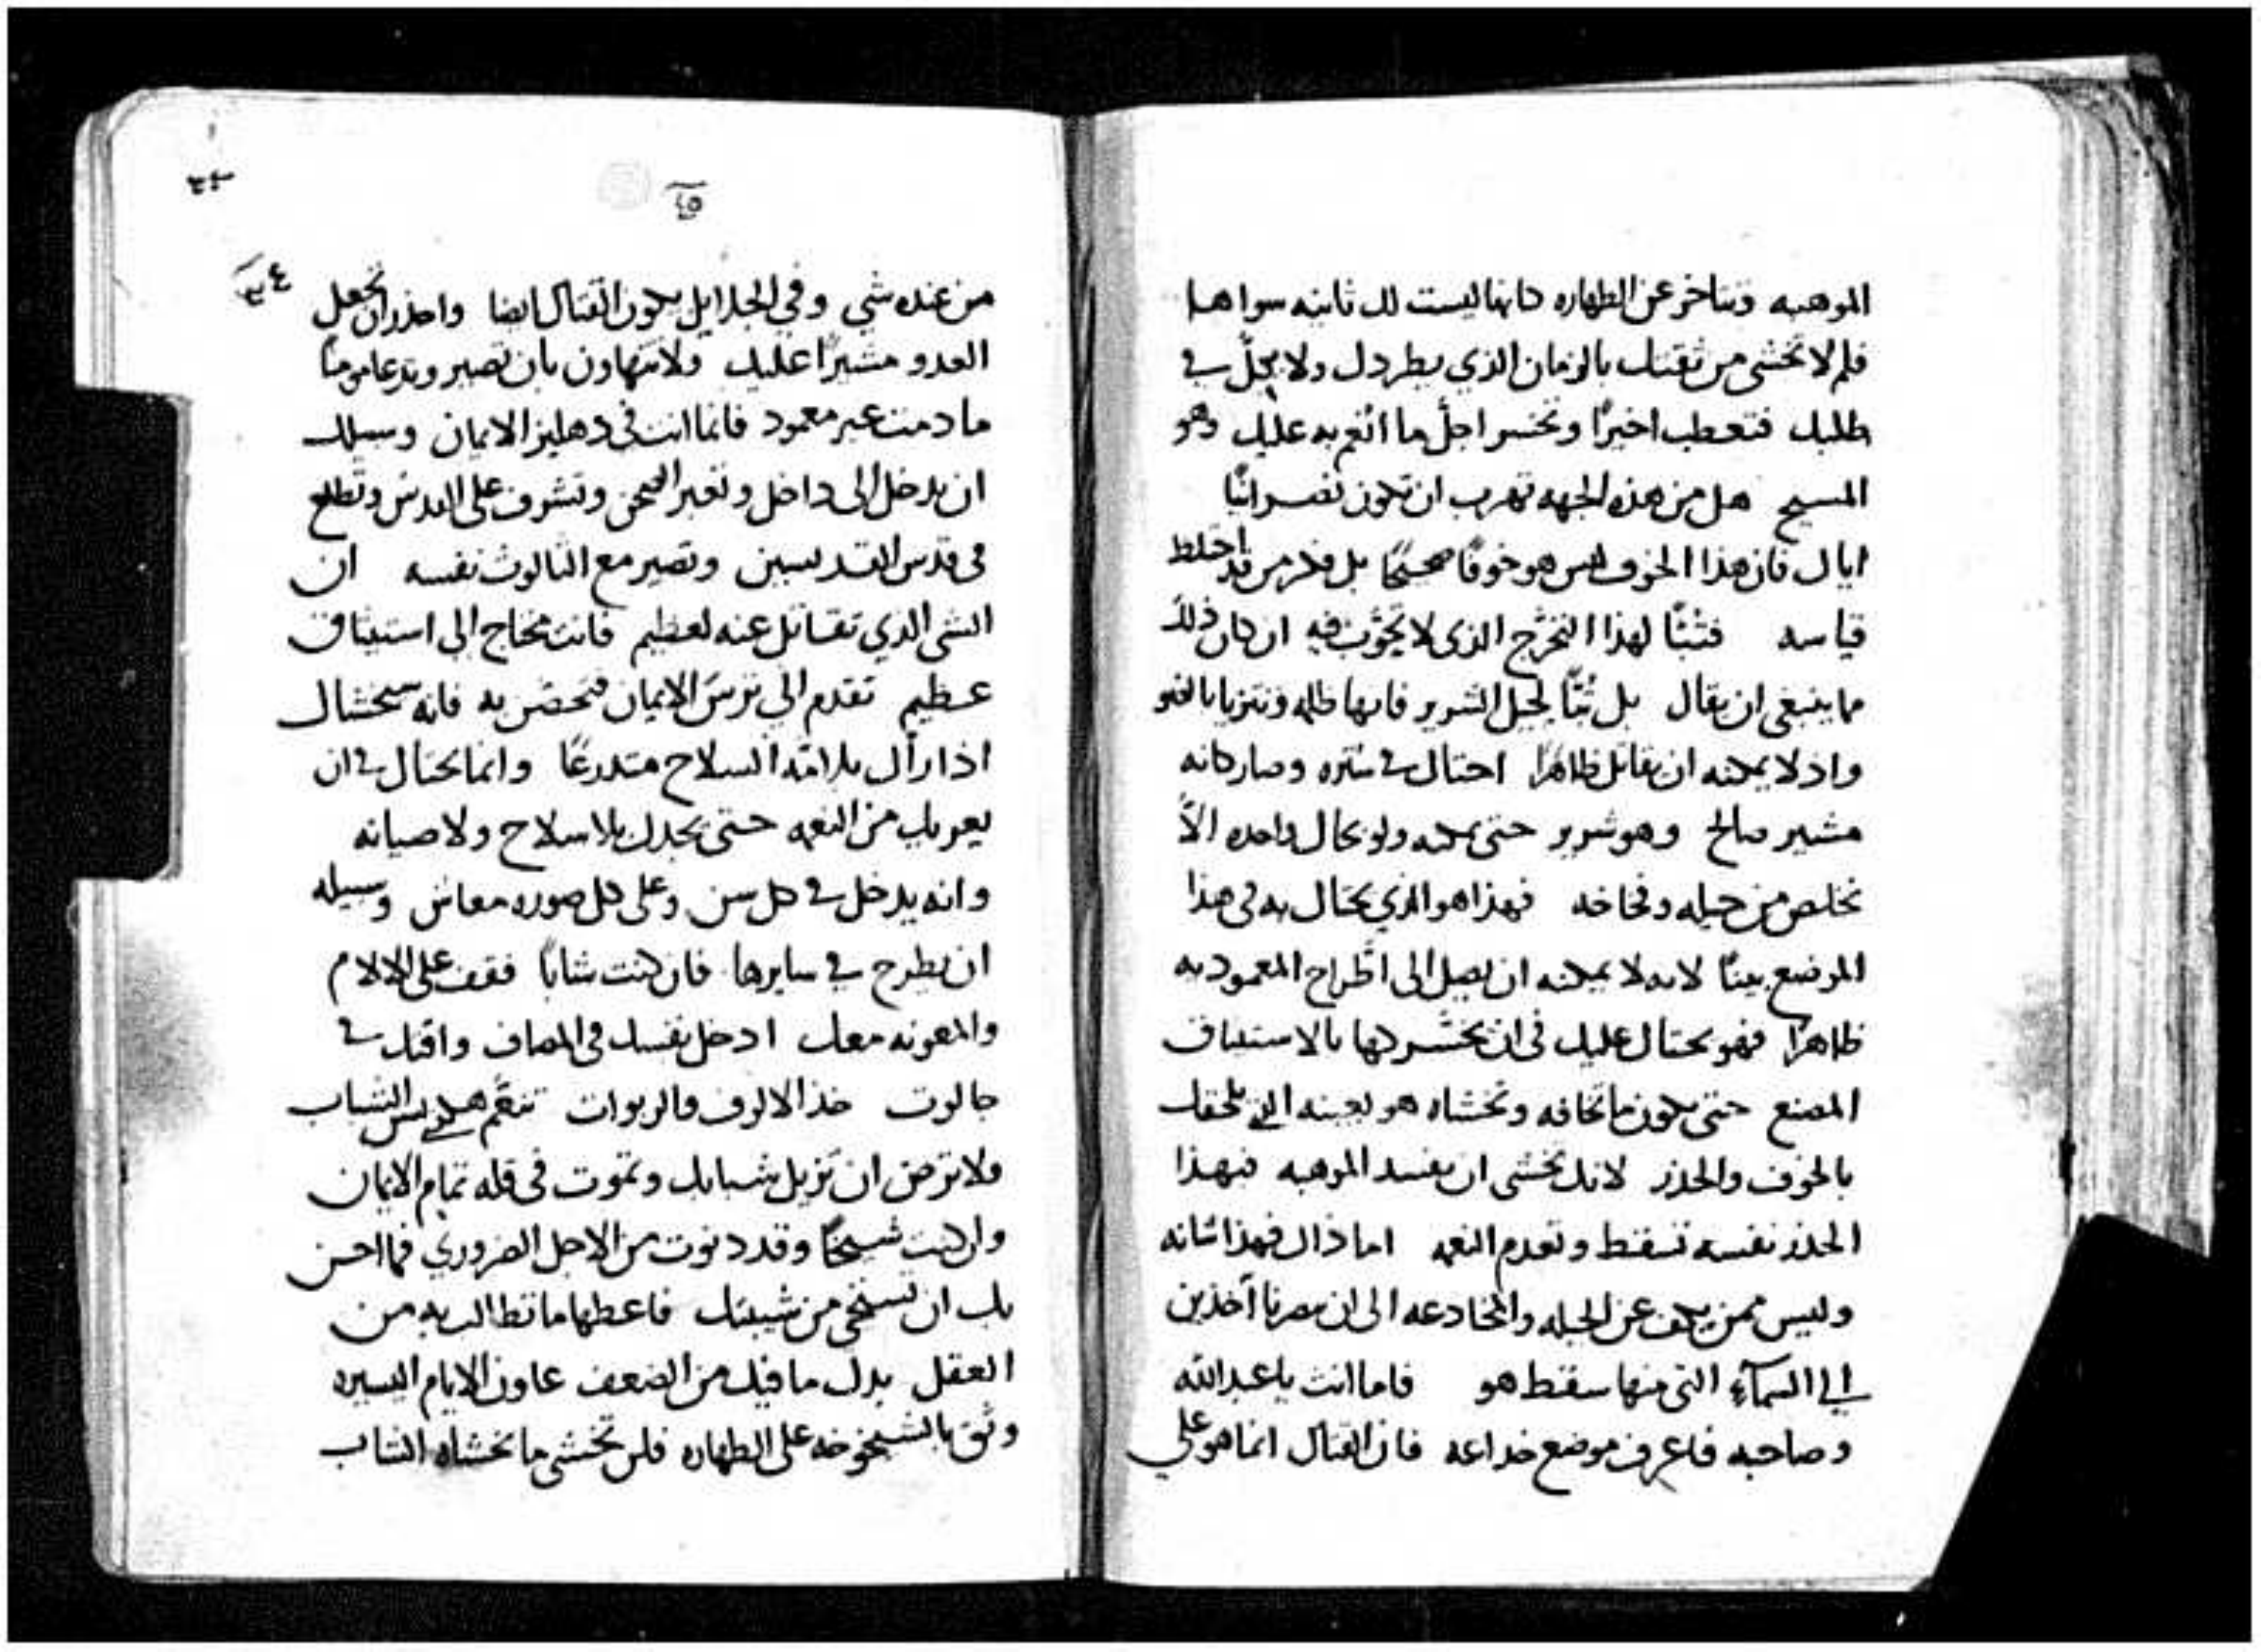 الموهبه وتتاخر عن الطهاره كانها ليست لك ثانيه سواها
فلم لا تخشى من ثقتك بالزمان الذي يطردك ولا يحلّ في
طلبك فتعطب اخيرًا وتخسر اجلّ ما انعم به عليك وهو
المسيح هل من هذه الجهه تهرب ان تكون نصرانيًا
اياك فان هذا الخوف ليس هو خوفًا صحيحًا بل فكر من قد اختلط
قياسه فتبًا لهذا التحرّج الذي لا تحوّب فيه ان كان ذلك
مما ينبغي ان يقال بل تبًّا لحيل الشرير فانها ظلمه وتتزيا بالضو
واذ لا يمكنه ان يقاتل ظاهرًا احتال في ستره وصار كانه
مشير صالح وهو شرير حتى يمكنه ولو بحال واحده الاّ
نخلص من حيله وفخاخه فهذا هو الذي يحتال به في هذا
الموضع بينًا لانه لا يمكنه ان يصل الى اطّراح المعموديه
ظاهرًا فهو يحتال عليك في ان تخسركها بالاستيثاق
المصنع حتى يكون ما تخافه وتخشاه هو بعينه الذي يلحقك
بالخوف والحذر لانك تخشى ان تفسد الموهبه فبهذا
الحذر نفسه تسقط وتعدم النعمه اما ذاك فهذا شانه
وليس ممن يكف عن الحيله والمخادعه الى ان يصرنا آخذين
الي السمآء التي منها سقط هو فاما انت يا عبد الله
وصاحبه فاعرف موضع خداعه فان القتال انما هو على
٤٥
٣٤
من عنده شي وفي الجلايل يكون القتال ايضا واحذر ان تجعل
العدو مشيرًا عليك ولا تتهاون بان تصير وتدعا مومنًا
ما دمت غير معمود فانما انت في دهليز الايمان وسبيلك
ان تدخل الى داخل وتعبر الصحن وتشرف على القدس وتطلع
في قدس القديسين وتصير مع الثالوث نفسه ان
الشي الذي تقاتل عنه لعظيم فانت محتاج الى استيثاق
عظيم تقدم الي ترس الايمان فتحصّن به فانه سيخشاك
اذا راك بلامة السلاح متدرعًا وانما يحتال في ان
يعريك من النعمه حتى يجدك بلا سلاح ولا صيانه
وانه يدخل في كل سن وعلى كل صوره معاش وسبيله
ان يطرح في سايرها فان كنت شابًا فقف على الالام
والمعونه معك ادخل نفسك في المصاف واقتل
جالوت خذ الالوف والربوات تنعّم هكذي بسن الشباب
ولا ترض ان تزبل شبابك وتموت في قله تمام الايمان
وان كنت شيخًا وقد دنوت من الاجل الضروري فما احسن
بك ان تستحي من شيبتك فاعطها ما تطالب به من
العقل بدل ما فيك من الضعف عاون الايام اليسيره
وثق بالشيخوخه على الطهاره فلن تخشى ما يخشاه الشاب